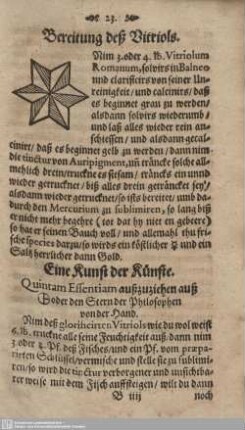 23.
Bereitung deß Vitriols.
Nim 3. oder 4. lb. Vitriolum
Romanum, solvirs in Balneo
und clarificirs von seiner Un-
reinigkeit / und calcinirs / daß
es beginnet grau zu werden /
alsdann solvirs wiederumb /
und laß alles wieder rein an-
schiessen / und alsdann getal-
cinirt / daß es beginnet gelb zu werden / dann nim
die tinctur von Auripigment, uñ träncke solche all-
mehlich drein / truckne es sietsam / träncks ein unnd
wieder getruckner / biß alles drein geträncket sey /
alsdann wieder getruckner / so ists bereitet / unnd da-
durch den Mercurium zu sublimiren, so lang biß
er nicht mehr begehre (ies dat hy niet en gebeere)
so hat er seinen Bauch voll / und allemahl thu fri-
sche species darzu / so wirds ein köstlicher ☿ und ein
Saltz herrlicher dann Gold.
Eine Kunst der Künste.
Quintam Essentiam außzuziehen auß
oder den Stern der Philosophen
von der Hand.
Nim deß glorificirten Vitriols wie du wol weist
6. lb. truckne alle seine Feuchtigkeit auß dann nim
3 oder 4. Pf. deß Fisches / und ein Pf. vom præpa-
rirten Schlüssel / vermische und stelle sie zu subli-
miren / so wird die tinctur verborgener und unsichtba-
rer weise mit dem Fisch auffsteigen / wilt du dann
B iiij noch